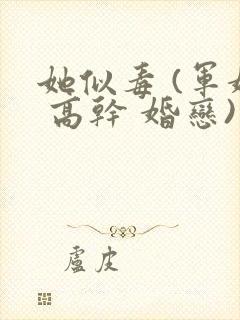 她似毒(軍
高幹 婚戀)
盧皮